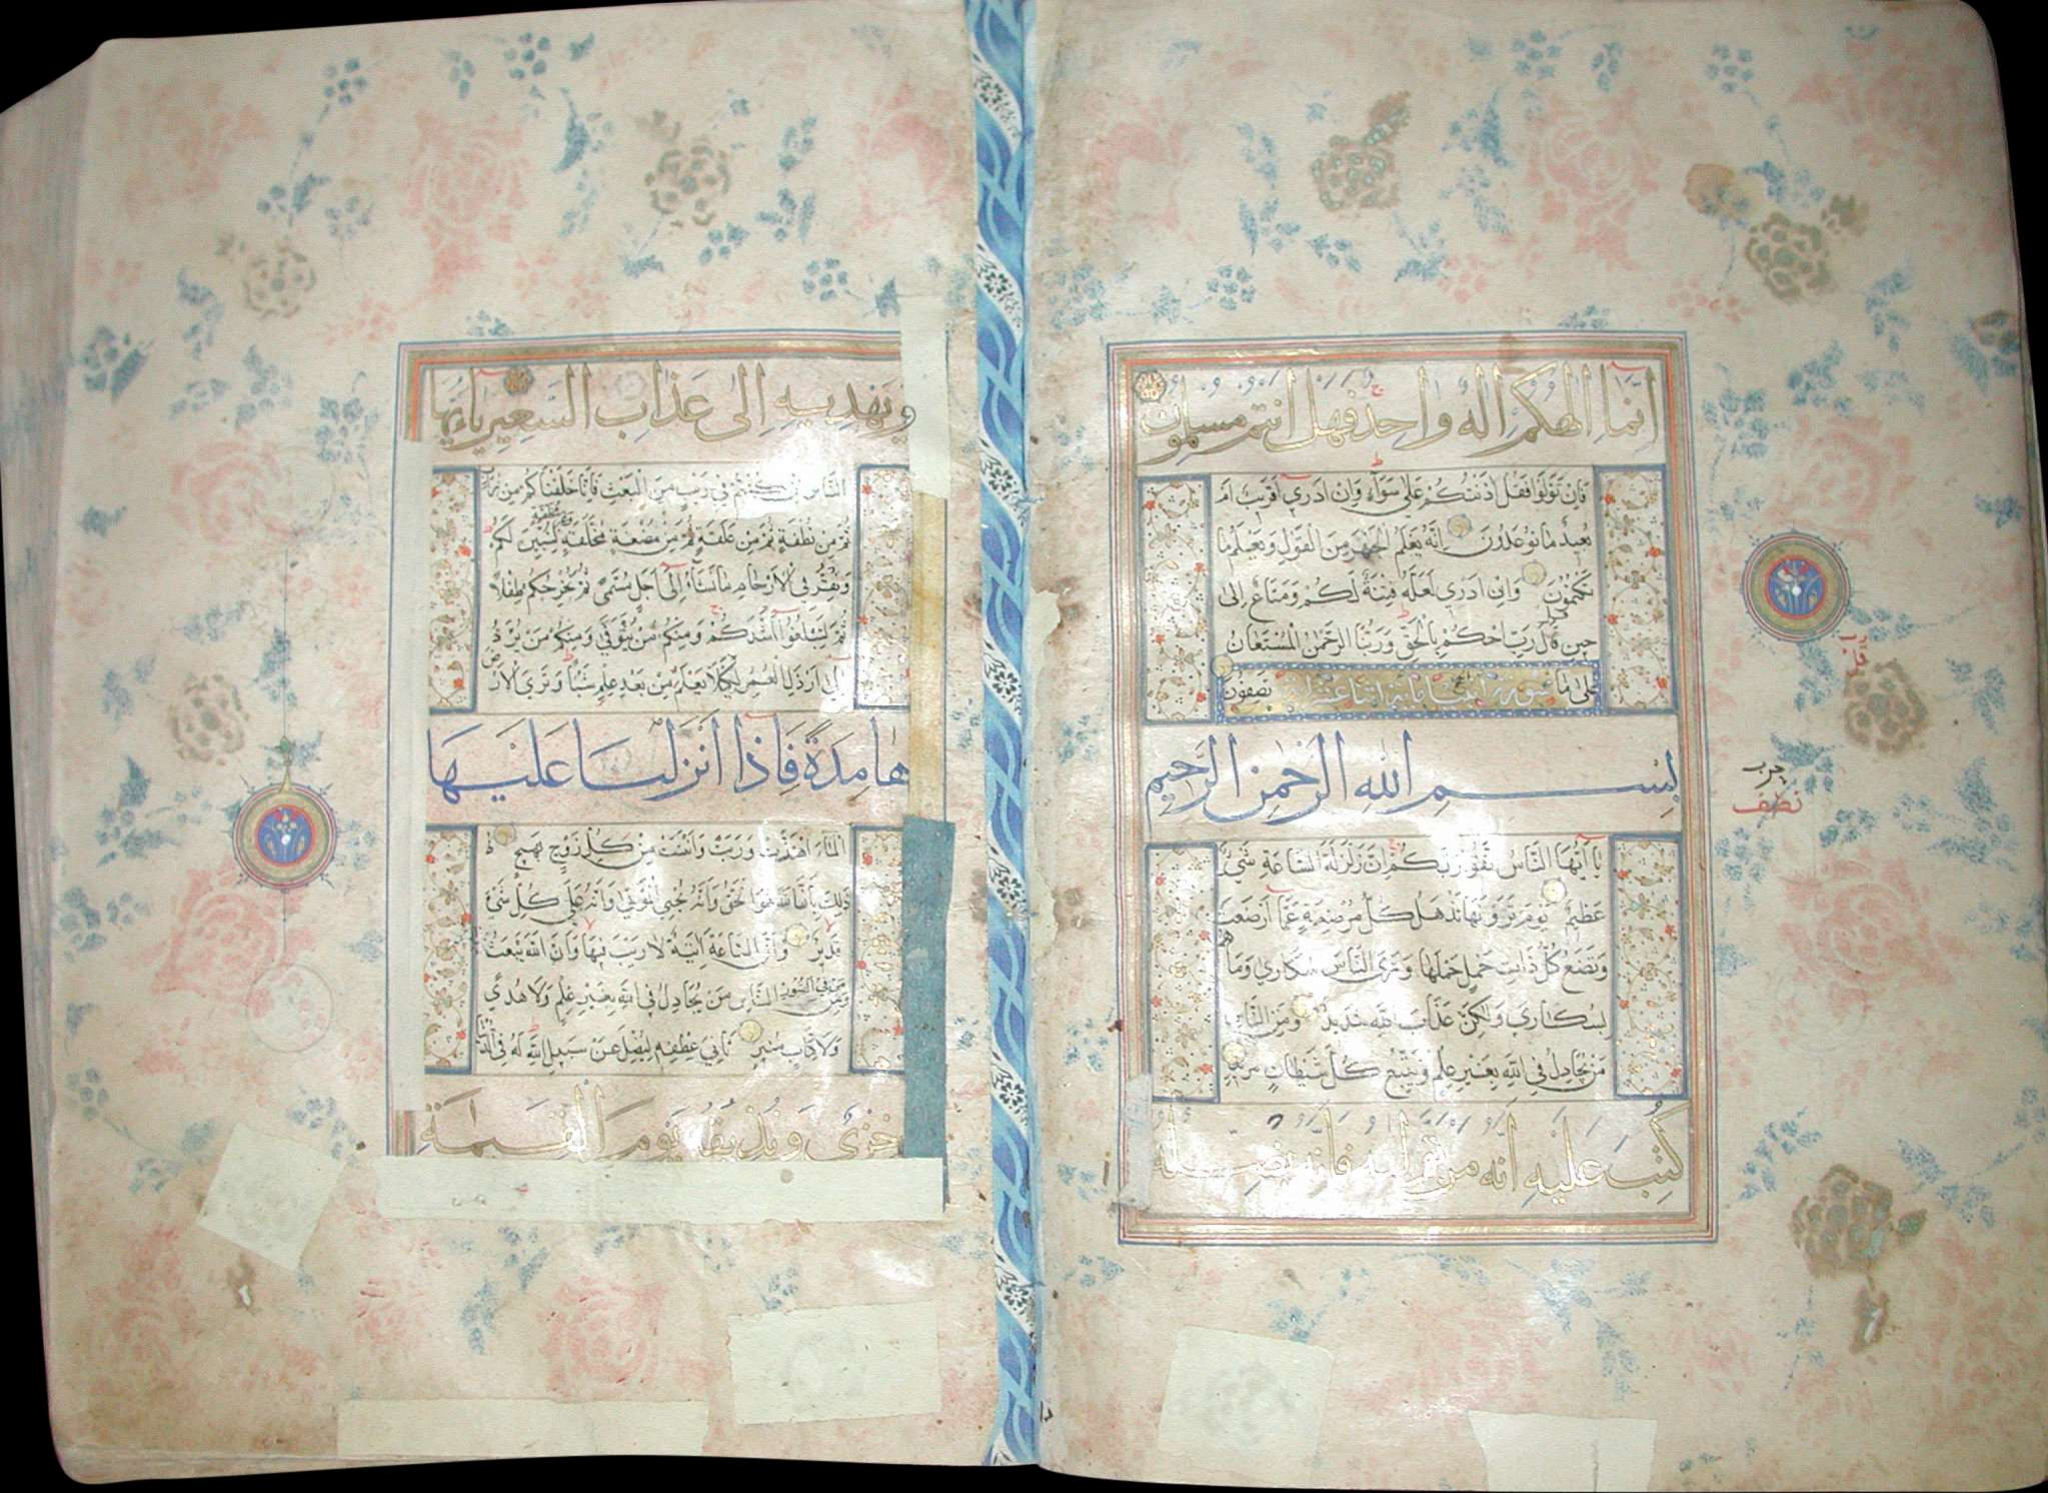 انما الهكم اله واحد فهل انتم مسلمون
فان تولوا فقل اذنتكم على سواء وان ادري اقريب ام
بعيد ما توعدون انه يعلم الجهر من القول ويعلم ما
تكتمون وان ادري لعله فتنة لكم ومتاع الى
حين قل رب احكم بالحق وربنا الرحمن المستعان
على ما تصفون
بسم الله الرحمن الرحيم
يا ايها الناس تقوا ربكم ان زلزلة الساعة شيء
عظيم يوم ترونها تذهل كل مرضعة عما ارضعت
وتضع كل ذات حمل حملها وترى الناس سكارى وما هم
بسكارى ولكن عذاب الله شديد ومن الناس
من يجادل في الله بغير علم ويتبع كل شيطان مريد
كتب عليه انه من تولاه فانه يضله
حزب
نصف
ويهديه الى عذاب السعير يا ايها
الناس ان كنتم في ريب من البعث فانا خلقناكم من تراب
ثم من نطفة ثم من علقة ثم من مضغة مخلقة وغير مخلقة لنبين لكم
ونقر في الارحام ما نشاء الى اجل مسمى ثم نخرجكم طفلا
ثم لتبلغوا اشدكم ومنكم من يتوفى ومنكم من يرد
الى ارذل العمر لكيلا يعلم من بعد علم شيئا وترى الارض
هامدة فاذا انزلنا عليها
الماء اهتزت وربت وانبتت من كل زوج بهيج
ذلك بان الله هو الحق وانه يحيي الموتى وانه على كل شيء
قدير وان الساعة اتية لا ريب فيها وان الله يبعث
من في القبور ومن الناس من يجادل في الله بغير علم ولا هدى
ولا كتاب منير ثاني عطفه ليضل عن سبيل الله له في الدنيا
خزي ونذيقه يوم القيمة